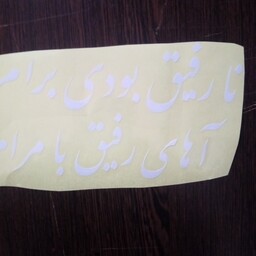 نا رفیق بودی برام
آهای رفیق با مرام